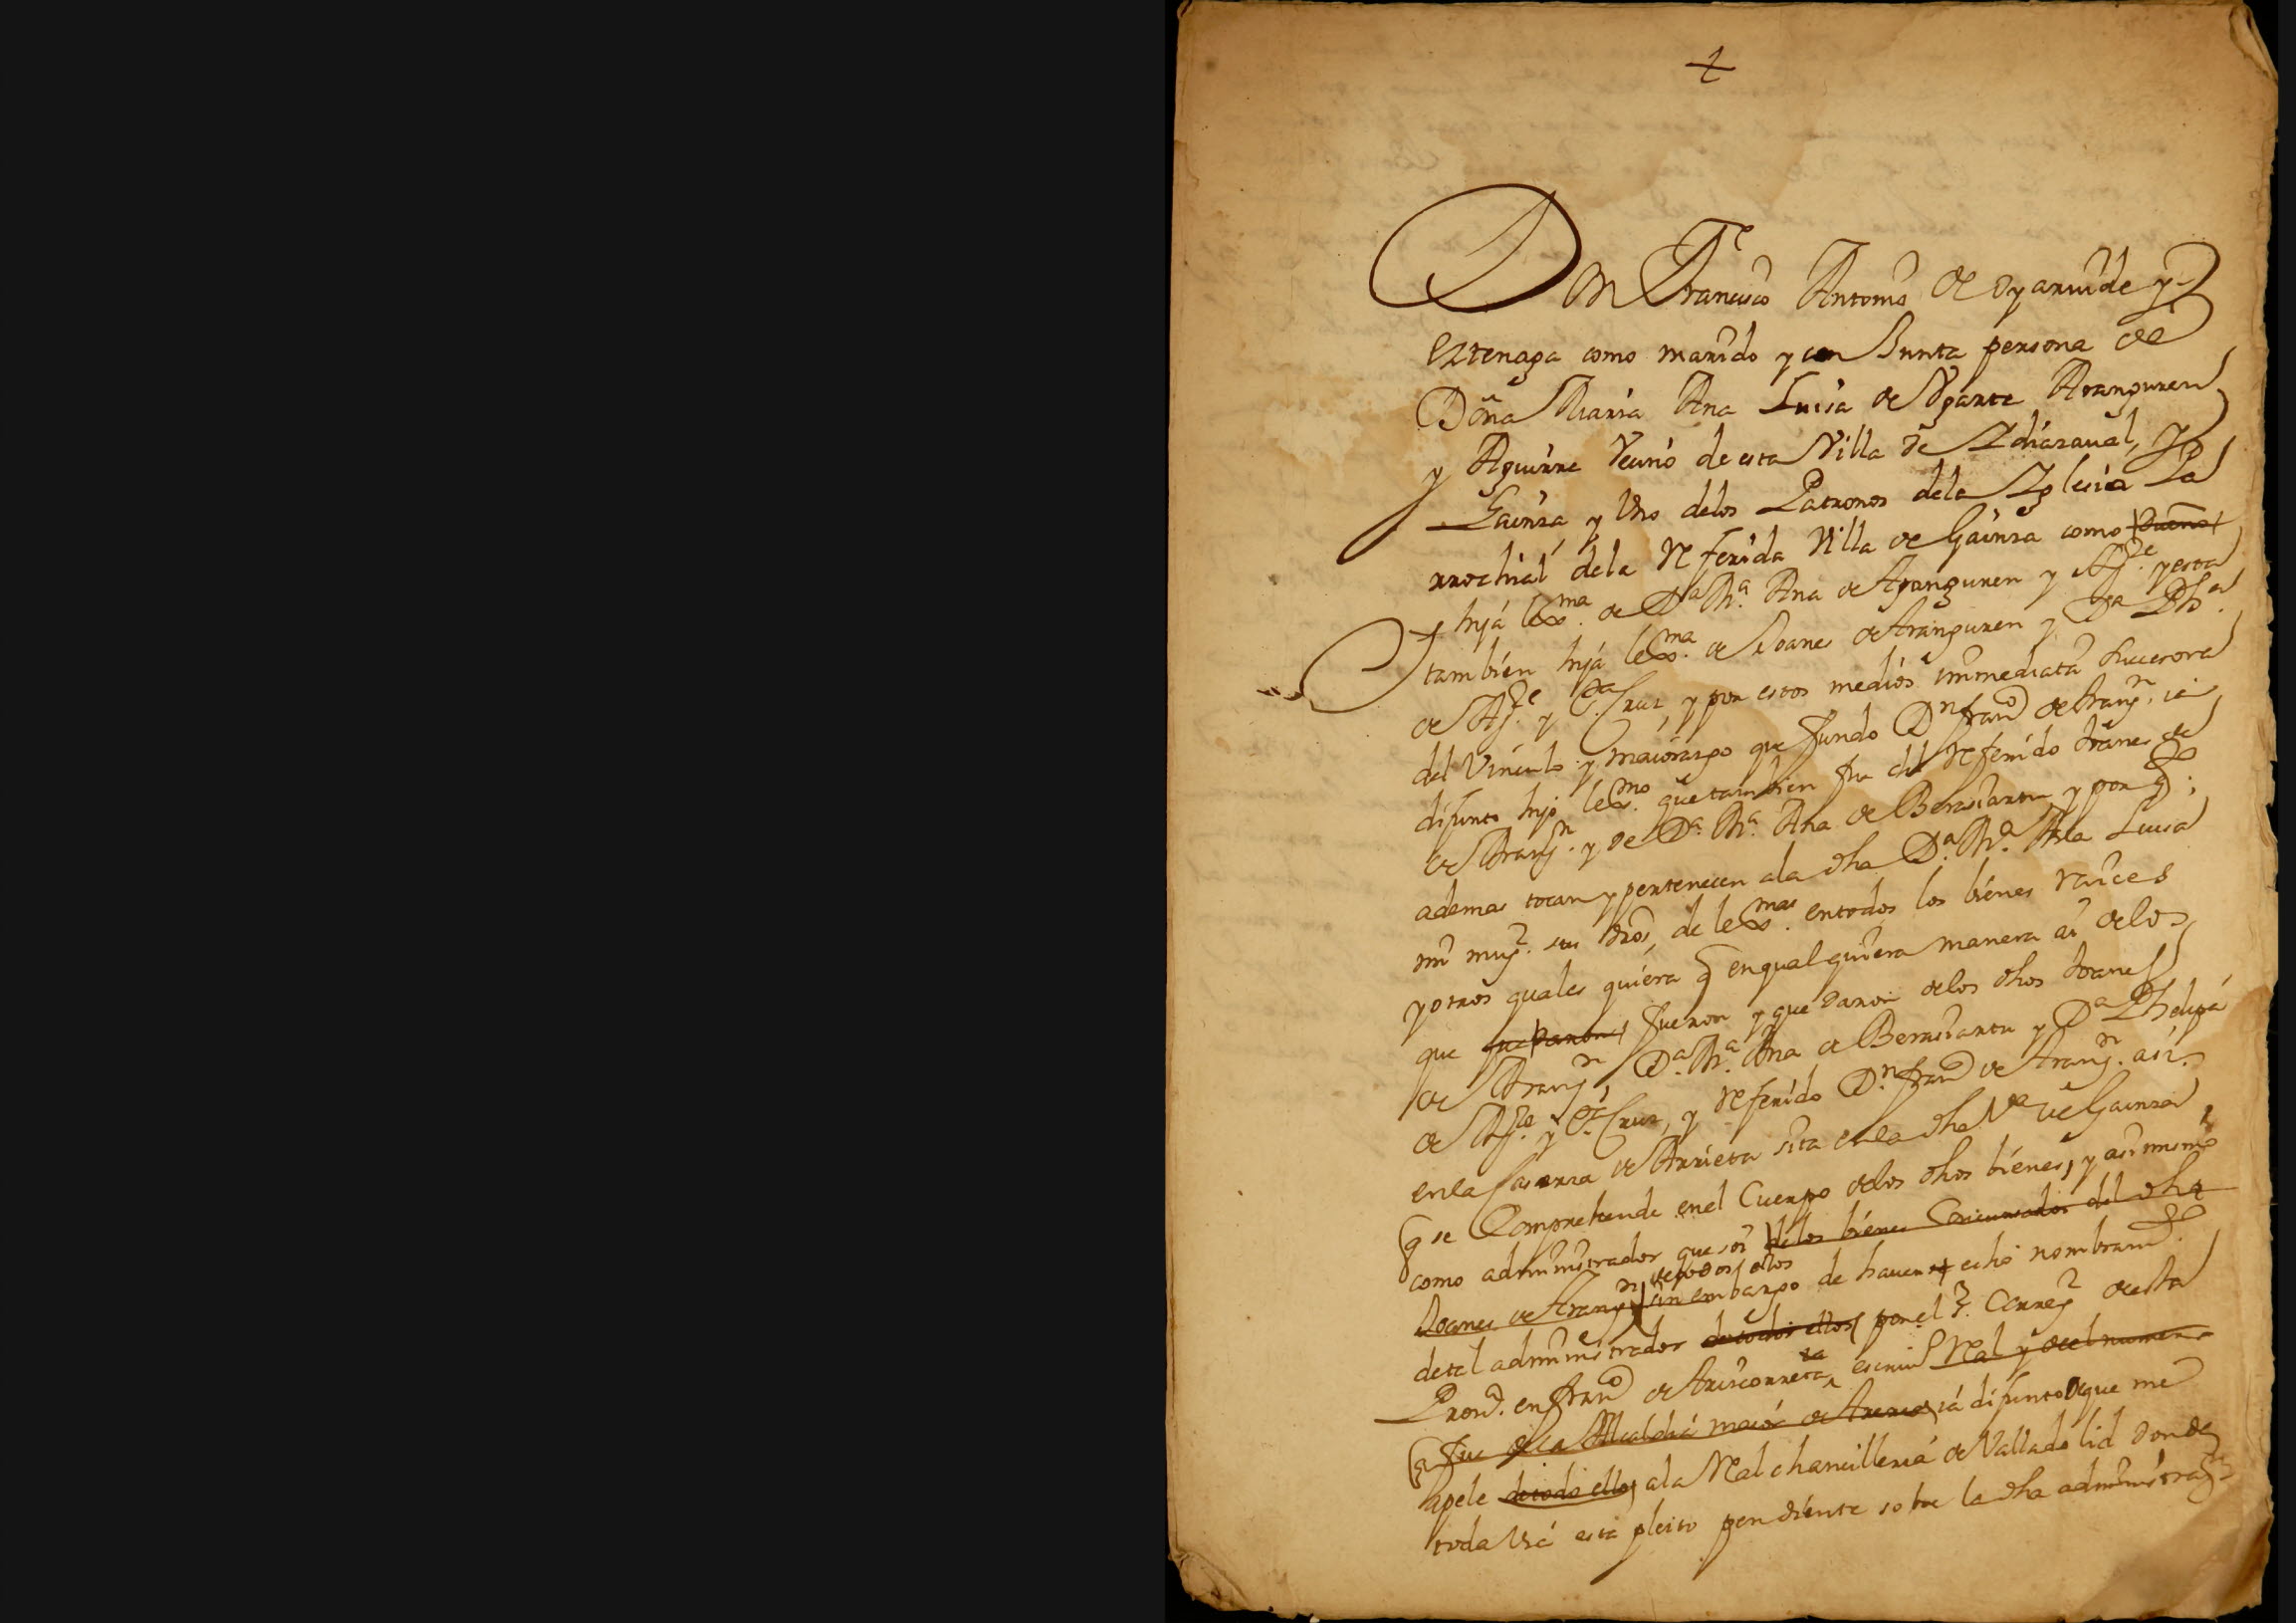 +
Don Francisco Antonio de Oyarvide y
Eztenaga como marido y con Junta persona de
Doña Maria Ana Luisa de Vgarte Aranguren
y Aguirre Vecino de esta Villa de Ydiazaual, y
Gainza, y Vno delos Patronos dela Yglesia Pa
rrochial dela Referida Villa de Gainza como dueño
hija lexma. de Da. Ma. Ana de Aranguren y Agre. y esta
tambien hija lexma. de Joanes de Aranguren y Da. Pha.
de Agre. y Sta. Cruz, y por estos medios immediata Sucesora
del Vinculo y maiorazgo que fundo Dn. franco. de Arangn. ia
difunto hijo lexmo. que tambien fue del Referido Joanes de
de Arangn. y de Da. Ma. Ana de Berasiartu y por qto.
ademas tocan y pertenecen ala dha Da. Ma. Ana Luisa
mi mugr. sus dros, de lexmas. entodos los bienes raices
y otros quales quiera q enqualquiera manera asi delos
que quedaron fueron y quedaron delos dhos Joanes
de Arangn, Da. Ma. Ana de Berasiartu y Da. Phelipa
de Agre. y Sta. Cruz, y Referido Dn. franco de Arangn. asi.
enla Caseria de Arrieta sita enla dha Va de Gainza
q se Comprehende enel Cuerpo delos dhos bienes, y asimismo
como administrador que soi delos bienes Concursados del dho
de todos ellos
Joanes de Arangn sin embargo de hauer echo nombramto.
detal administrador de todos ellos por el Sr. Corregr desta
Prova. en franco de Ariscorreta escriuo Real y del numero
q fue de la Alcaldia maior de Areria, ia difunto que me
apele de todo ello, ala Real chancilleria de Vallado lid donde
toda Via esta pleito pendiente sobre la dha administrazn